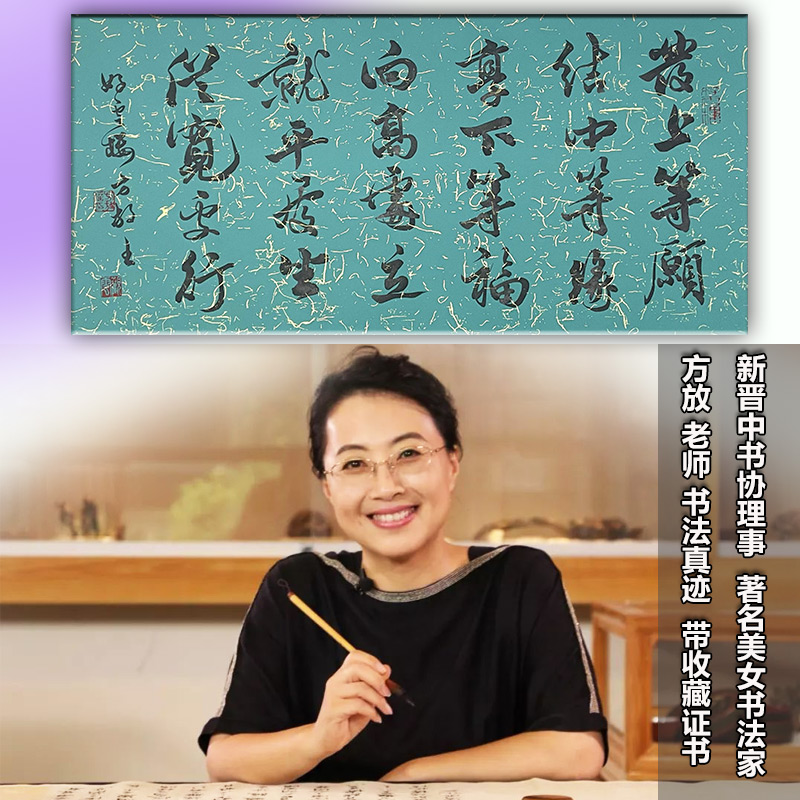 發上等願
结中等缘
享下等福
向高處立
就平處坐
從寬處行
新晋中书协理事 著名美女书法家
方放 老师 书法真迹 带收藏证书